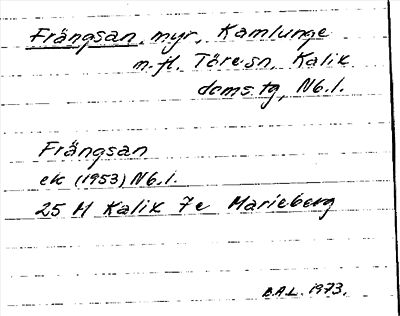 Frängsan, myr, Kamlunge
m.fl. Töre sn, Kalix
doms.tg, Nb.l.
Frängsan
ek (1953) Nb.l.
25 M Kalix 7e Marieberg
B.A.L. 1973.